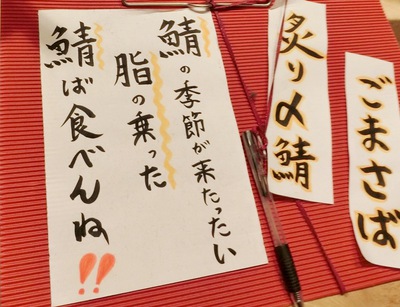 鯖の季節が来たったい
脂の乗った
鯖ば食べんね!!
炙り〆鯖
ごまさば